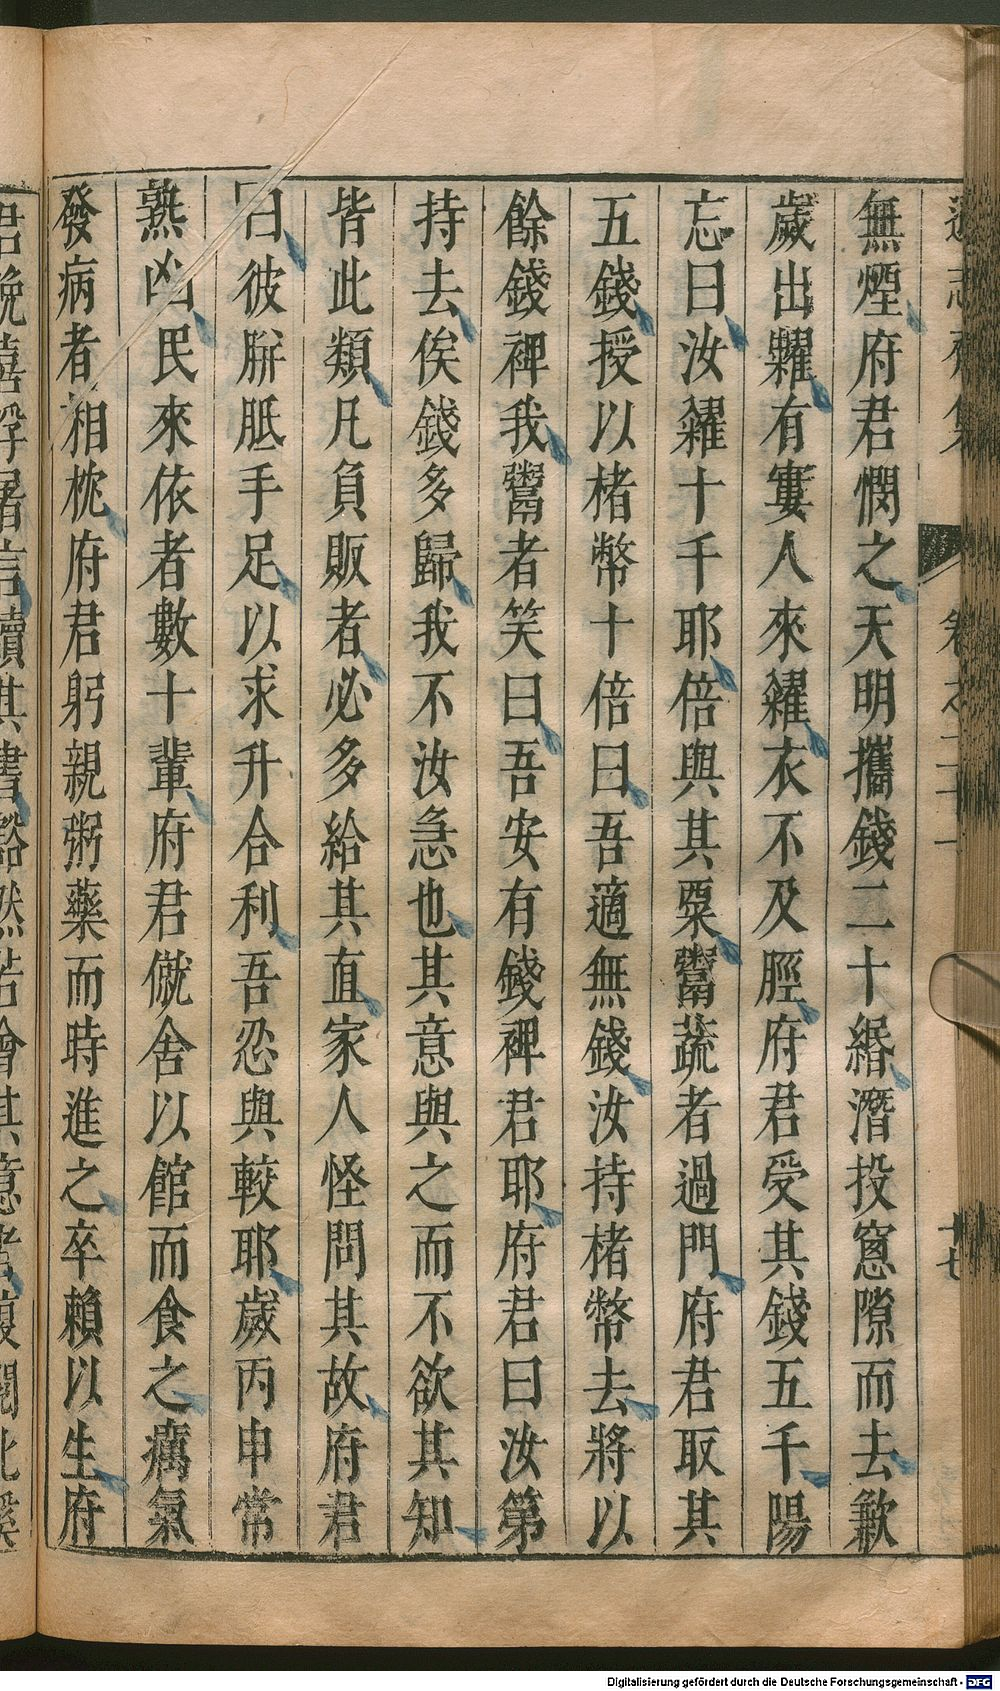 無煙府君憫之天明攜錢二十緡潛投窻隙而去歉
歲出糶有窶人來糴衣不及脛府君受其錢五千陽
忘曰汝糴十千耶倍與其粟鬻蔬者過門府君取其
五錢授以楮幣十倍曰吾適無錢汝持楮幣去將以
餘錢裨我鬻者笑曰吾安有錢裨君耶府君曰汝第
持去俟錢多歸我不汝急也其意與之而不欲其知
皆此類凡負販者必多給其直家人怪問其故府君
曰彼胼胝手足以求升合利吾忍與較耶歲丙申常
熟凶民來依者數十輩府君僦舍以館而食之癘氣
發病者相枕府君躬親粥藥而時進之卒賴以生府
卷之二十一
十七
Digitalisierung gefördert durch die Deutsche Forschungsgemeinschaft - DFG